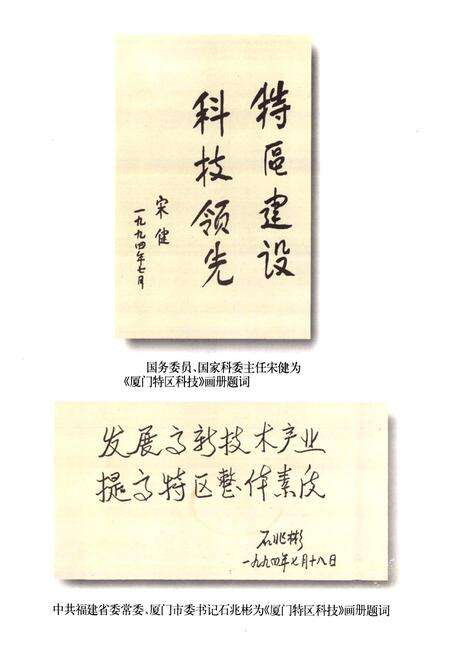 特區建设
科技领先
宋健
一九九四年七月
国务委员、国家科委主任宋健为
《厦门特区科技》画册题词
发展高新技术产业
提高特区整体素质
石兆彬
一九九四年七月十八日
中共福建省委常委、厦门市委书记石兆彬为《厦门特区科技》画册题词